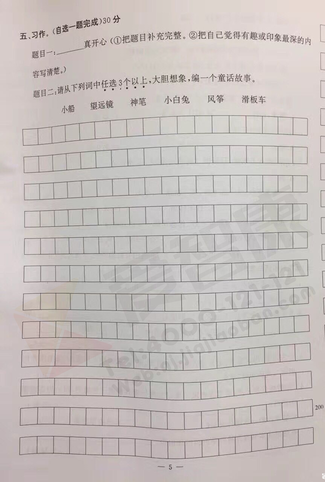 五、习作。(自选一题完成)30分
题目一,______真开心(①把题目补充完整。②把自己觉得有趣或印象最深的内
容写清楚。)
题目二:请从下列词中任选3个以上,大胆想象,编一个童话故事。
小船 望远镜 神笔 小白兔 风筝 滑板车
爱智康
Tel:4000-121-121
200
— 5 —